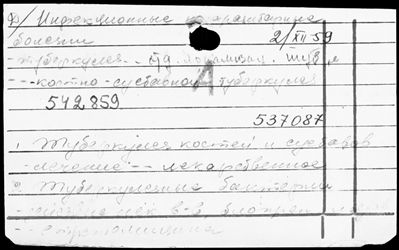 Ф/ Инфекционные и паразитарные
болезни 2/XII-59
- туберкулез.
-- костно-суставной туберкулез
542.859
537087
1. Туберкулез костей и суставов
- лечение -- лекарственное
2. Туберкулезные бактерии
- стрептомицина